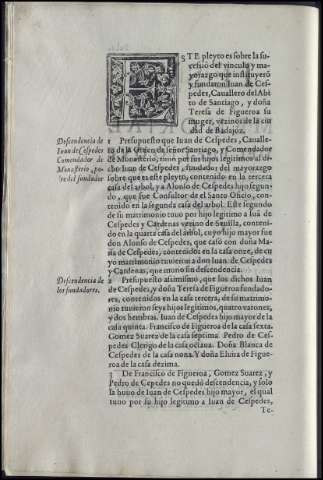 ESTE pleyto es sobre la su-
cession del vinculo y ma-
yorazgo que instituyerō
y fundaron Iuan de Ces-
pedes, Cauallero del Abi
to de Santiago, y doña
Teresa de Figueroa su
muger, vezinos de la ciu
dad de Badajoz.
Descendencia de
Iuan de Cespedes
Comendador de
Monasterio, pa-
dre del fundador
1 Presupuesto que Iuan de Cespedes, Caualle-
ro de la Orden de señor Santiago, y Comendador
de Monasterio, tuuo por sus hijos legitimos al di-
cho Iuan de Cespedes, fundador del mayorazgo
sobre que es este pleyto, contenido en la tercera
casa del arbol, y a Alonso de Cespedes hijo segun-
do, que fue Consultor de el Santo Oficio, conteni-
do en la segunda casa del arbol. Este segundo
de su matrimonio tuuo por hijo legitimo a Iuā de
Cespedes y Cardenas vezino de Seuilla, conteni-
do en la quarta casa del arbol, cuyo hijo mayor fue
don Alonso de Cespedes, que casò con doña Ma-
ria de Cespedes, contenidos en la casa onze, de cu-
yo matrimonio tuuieron a don Iuan de Cespedes
y Cardenas, que murio sin descendencia.
Descendencia de
los fundadores.
2 Presupuesto assimismo, que los dichos Iuan
de Cespedes, y doña Teresa de Figueroa fundado-
res, contenidos en la casa tercera, de su matrimo-
nio tuuieron seys hijos legitimos, quatro varones,
y dos hembras. Iuan de Cespedes hijo mayor de la
casa quinta. Francisco de Figueroa de la casa sexta.
Gomez Suarez de la casa septima. Pedro de Ces-
pedes Clerigo de la casa octaua. Doña Blanca de
Cespedes de la casa nona. Y doña Eluira de Figue-
roa de la casa dezima.
3 De Francisco de Figueroa, Gomez Suarez, y
Pedro de Cepedes no quedò descendencia, y solo
la huuo de Iuan de Cespedes hijo mayor, el qual
tuuo por su hijo legitimo a Iuan de Cespedes,
Te-